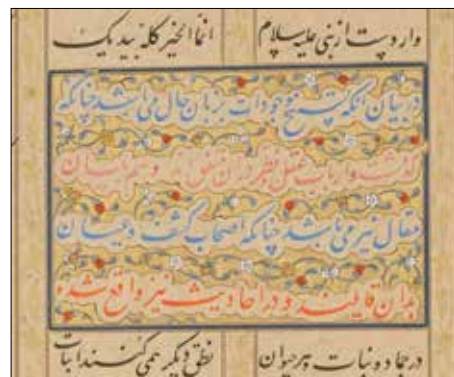 واردست از نبی علیه سلام انما الخیر کله بیدیک
در بیان آنکه تسبیح موجودات بزبان حال می باشد چنانکه
وارباب عقل و نظر بران متفق اند و هم بلسان
مقال نیز می باشد چنانکه اصحاب کشف و عیان
بدان قایلند و در احادیث نیز واقع شده
در جماد و نبات و هر حیوان نطق دیگر همی کنند اثبات